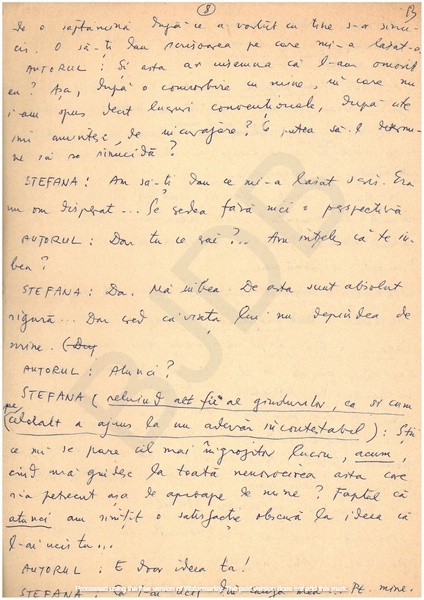 (8)
la o săptămână după ce a vorbit cu tine s-a sinu-
cis. O să-ți dau scrisoarea pe care mi-a lăsat-o.
AUTORUL: Și asta ar însemna că l-am omorît
eu? Așa, după o convorbire cu mine, în care nu
i-am spus decît lucruri convenționale, după cîte
îmi amintesc, de încurajare? O putea să-l determi-
ne să se sinucidă?
ȘTEFANA: Am să-ți dau ce mi-a lăsat scris. Era
un om disperat... Se vedea fără nici o perspectivă
AUTORUL: Dar tu ce erai?... Am înțeles că te iu-
bea?
ȘTEFANA: Da. Mă iubea. De asta sunt absolut
sigură... Dar cred că viața lui nu depindea de
mine.
AUTORUL: Atunci?
ȘTEFANA (reluînd alt fir al gîndurilor, ca și cum
pe celălalt a ajuns la un adevăr incontestabil): Știi
ce mi se pare cel mai îngrozitor lucru, acum,
cînd mă gîndesc la toată nenorocirea asta care
s-a petrecut așa de aproape de mine? Faptul că
atunci am simțit o satisfacție obscură la ideea că
l-ai ucis tu...
AUTORUL: E doar ideea ta!
ȘTEFANA: Că l-ai ucis din cauza mea... Pt. mine.
BJDB